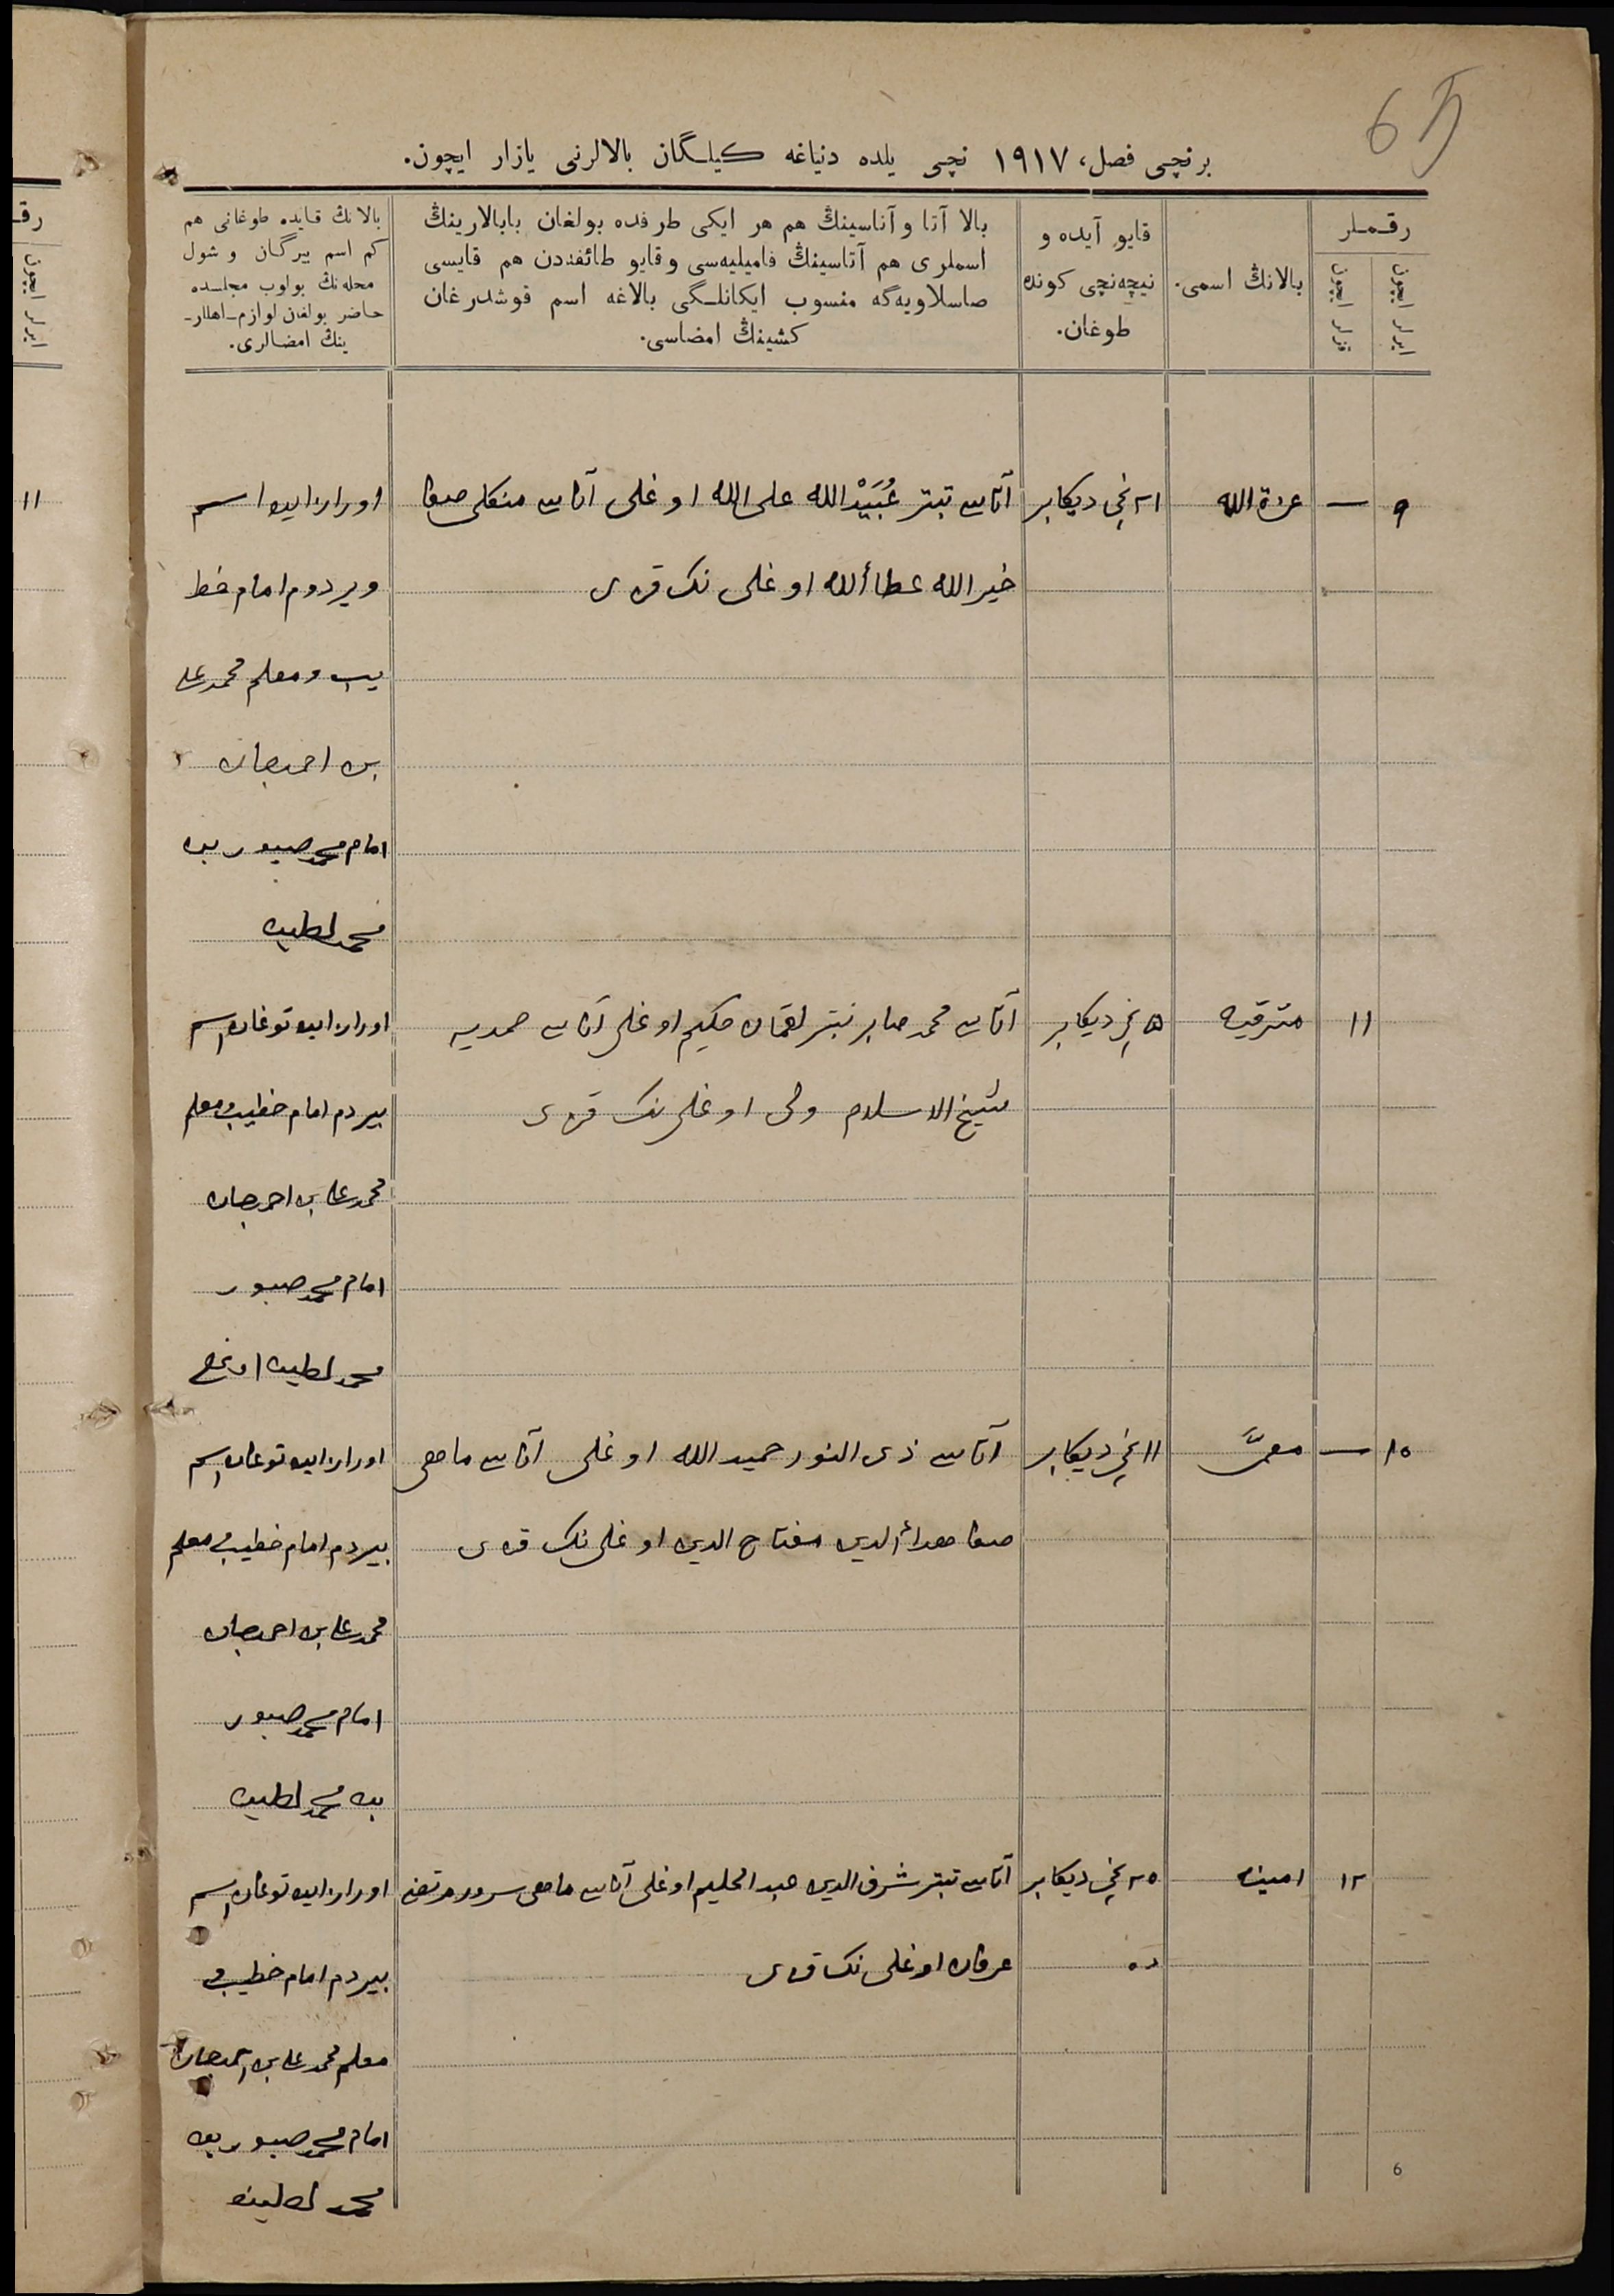 65
برنچی فصل، ١٩١٧ نچی یلده دنیاغه كیلـگان بالالرنی یازار ایچون.
رقـمـلر
ایرلر ایچون
قزلر ایچون
بالانڭ اسمی.
قایو آیده و
نیچه‌نچی كونده
طوغان.
بالا آتا و آناسینڭ هم هر ایكی طرفده بولغان بابالارینڭ
اسملری هم آتاسینڭ فامیلیه‌سی و قایو طائفه‌دن هم قایسی
صاسلاویه‌گه منسوب ایكانلـگی بالاغه اسم قوشدرغان
كشینڭ امضاسی.
بالانڭ قـایده طوغانی هم
كم اسم بیرگـان و شول
محله‌نڭ بولوب مجلسده
حـاضر بولغان لوازم‌ـ اهللر‌ـ
ینڭ امضـالری.
٩
—
عزة الله
٢١ نچی دیكابر
آتاسی تبتر عُبَیْدالله علی الله اوغلی آناسی
خیرالله عطاألله اوغلی نك قزی
اسم
ویردوم امام خط
یب و معلم محمدعلی
بن احمدجان
امام محمد صبور بن
محمد لطیف
١١
مشرقیه
٥ نچی دیكابر
آتاسی محمد صابر تبتر لقمان حكیم اوغلی آناسی حمدیه
شیخ الاسلام ولی اوغلی نك قزی
توغان اسم
بیردم امام خطیب و معلم
محمدعلی بن احمدجان
امام محمد صبور
محمد لطیف اوغلی
١٠
—
معمر
١١ نچی دیكابر
آتاسی ذی النور حمید الله اوغلی آناسی ماهی
مفتاح الدین اوغلی نك قزی
توغان اسم
بیردم امام خطیب و معلم
محمدعلی بن احمدجان
امام محمد صبور
بن محمد لطیف
١٢
امینه
٢٥ نچی دیكابر
ده
آتاسی تبتر شرف الدین عبدالحلیم اوغلی آناسی ماهی سرور
عرفان اوغلی نك قزی
توغان اسم
بیردم امام خطیب و
معلم محمدعلی بن احمدجان
امام محمد صبور بن
محمد لطیف
6
رقـ
ایرلر ایچون
١١